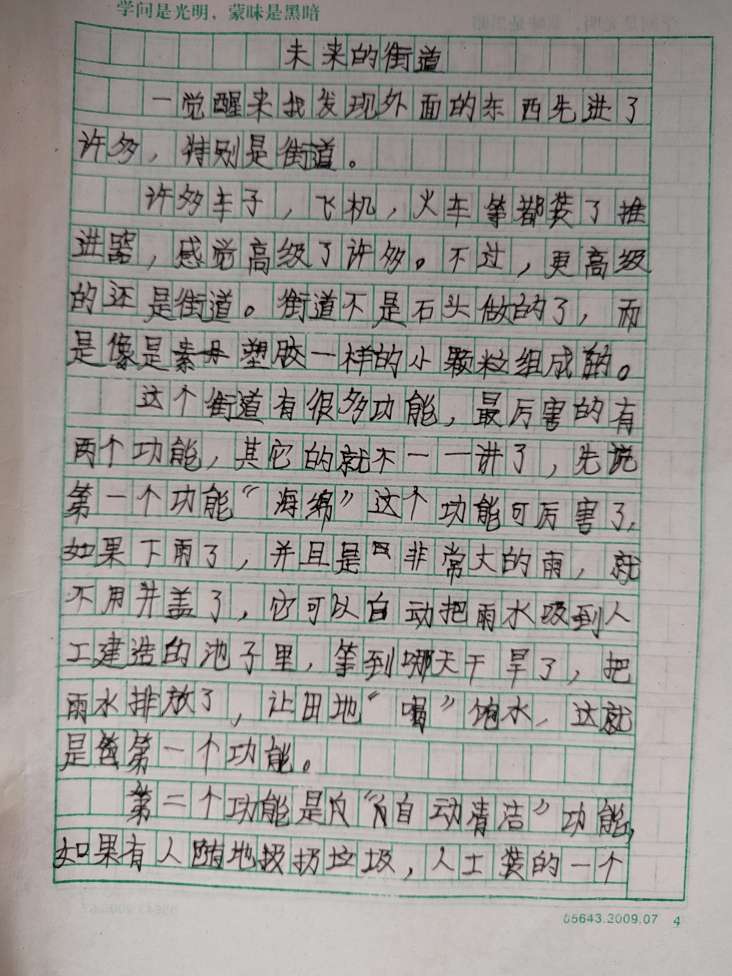 学问是光明，蒙昧是黑暗
未来的街道
一觉醒来我发现外面的东西先进了
许多，特别是街道。
许多车子，飞机，火车等都装了推
进器，感觉高级了许多。不过，更高级
的还是街道。街道不是石头做的了，而
是像是塑胶一样的小颗粒组成的。
这个街道有很多功能，最厉害的有
两个功能，其它的就不一一讲了，先说
第一个功能“海绵”这个功能可厉害了，
如果下雨了，并且是非常大的雨，就
不用井盖了，它可以自动把雨水吸到人
工建造的池子里，等到哪天干旱了，把
雨水排放了，让田地“喝”饱水，这就
是第一个功能。
第二个功能是“自动清洁”功能，
如果有人随地扔垃圾，人工装的一个
05643.2009.07 4